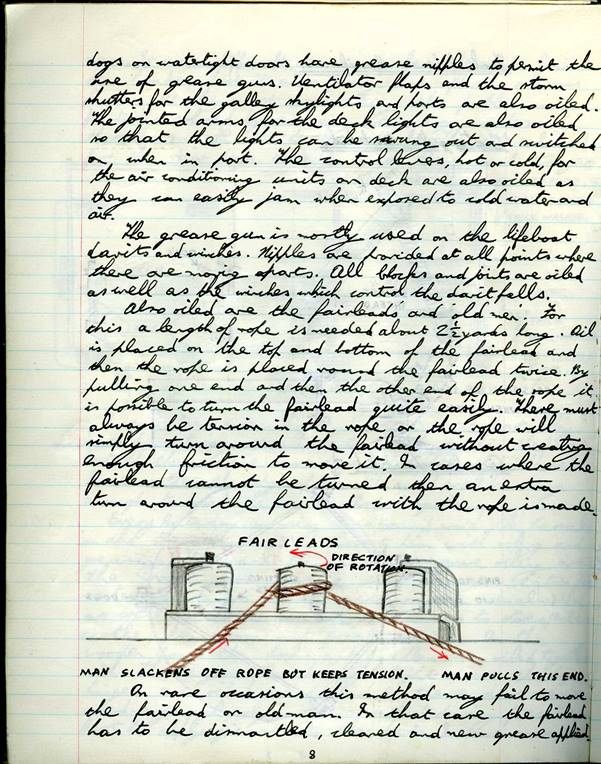 dogs on watertight doors have grease nipples to permit the
use of grease guns. Ventilator flaps and the storm
shutters for the galley skylights and ports are also oiled.
The jointed arms for the deck lights are also oiled
so that the lights can be swung out and switched
on when in port. The control levers, hot or cold, for
the air conditioning units on deck are also oiled as
they can easily jam when exposed to cold water and
air.
The grease gun is mostly used on the lifeboat
davits and winches. Nipples are provided at all points where
there are moving parts. All blocks and joints are oiled
as well as the winches which control the davit falls.
Also oiled are the fairleads and 'old men'. For
this a length of rope is needed about 2½ yards long. Oil
is placed on the top and bottom of the fairlead and
then the rope is placed round the fairlead twice. By
pulling one end and then the other end of the rope it
is possible to turn the fairlead quite easily. There must
always be tension in the rope or the rope will
simply turn around the fairlead without creating
enough friction to move it. In cases where the
fairlead cannot be turned then an extra
turn around the fairlead with the rope is made.
FAIR LEADS
DIRECTION
OF ROTATION.
MAN SLACKENS OFF ROPE BUT KEEPS TENSION. MAN PULLS THIS END.
On rare occasions this method may fail to move
the fairlead or old man. In that case the fairlead
has to be dismantled, cleared and new grease applied.
8